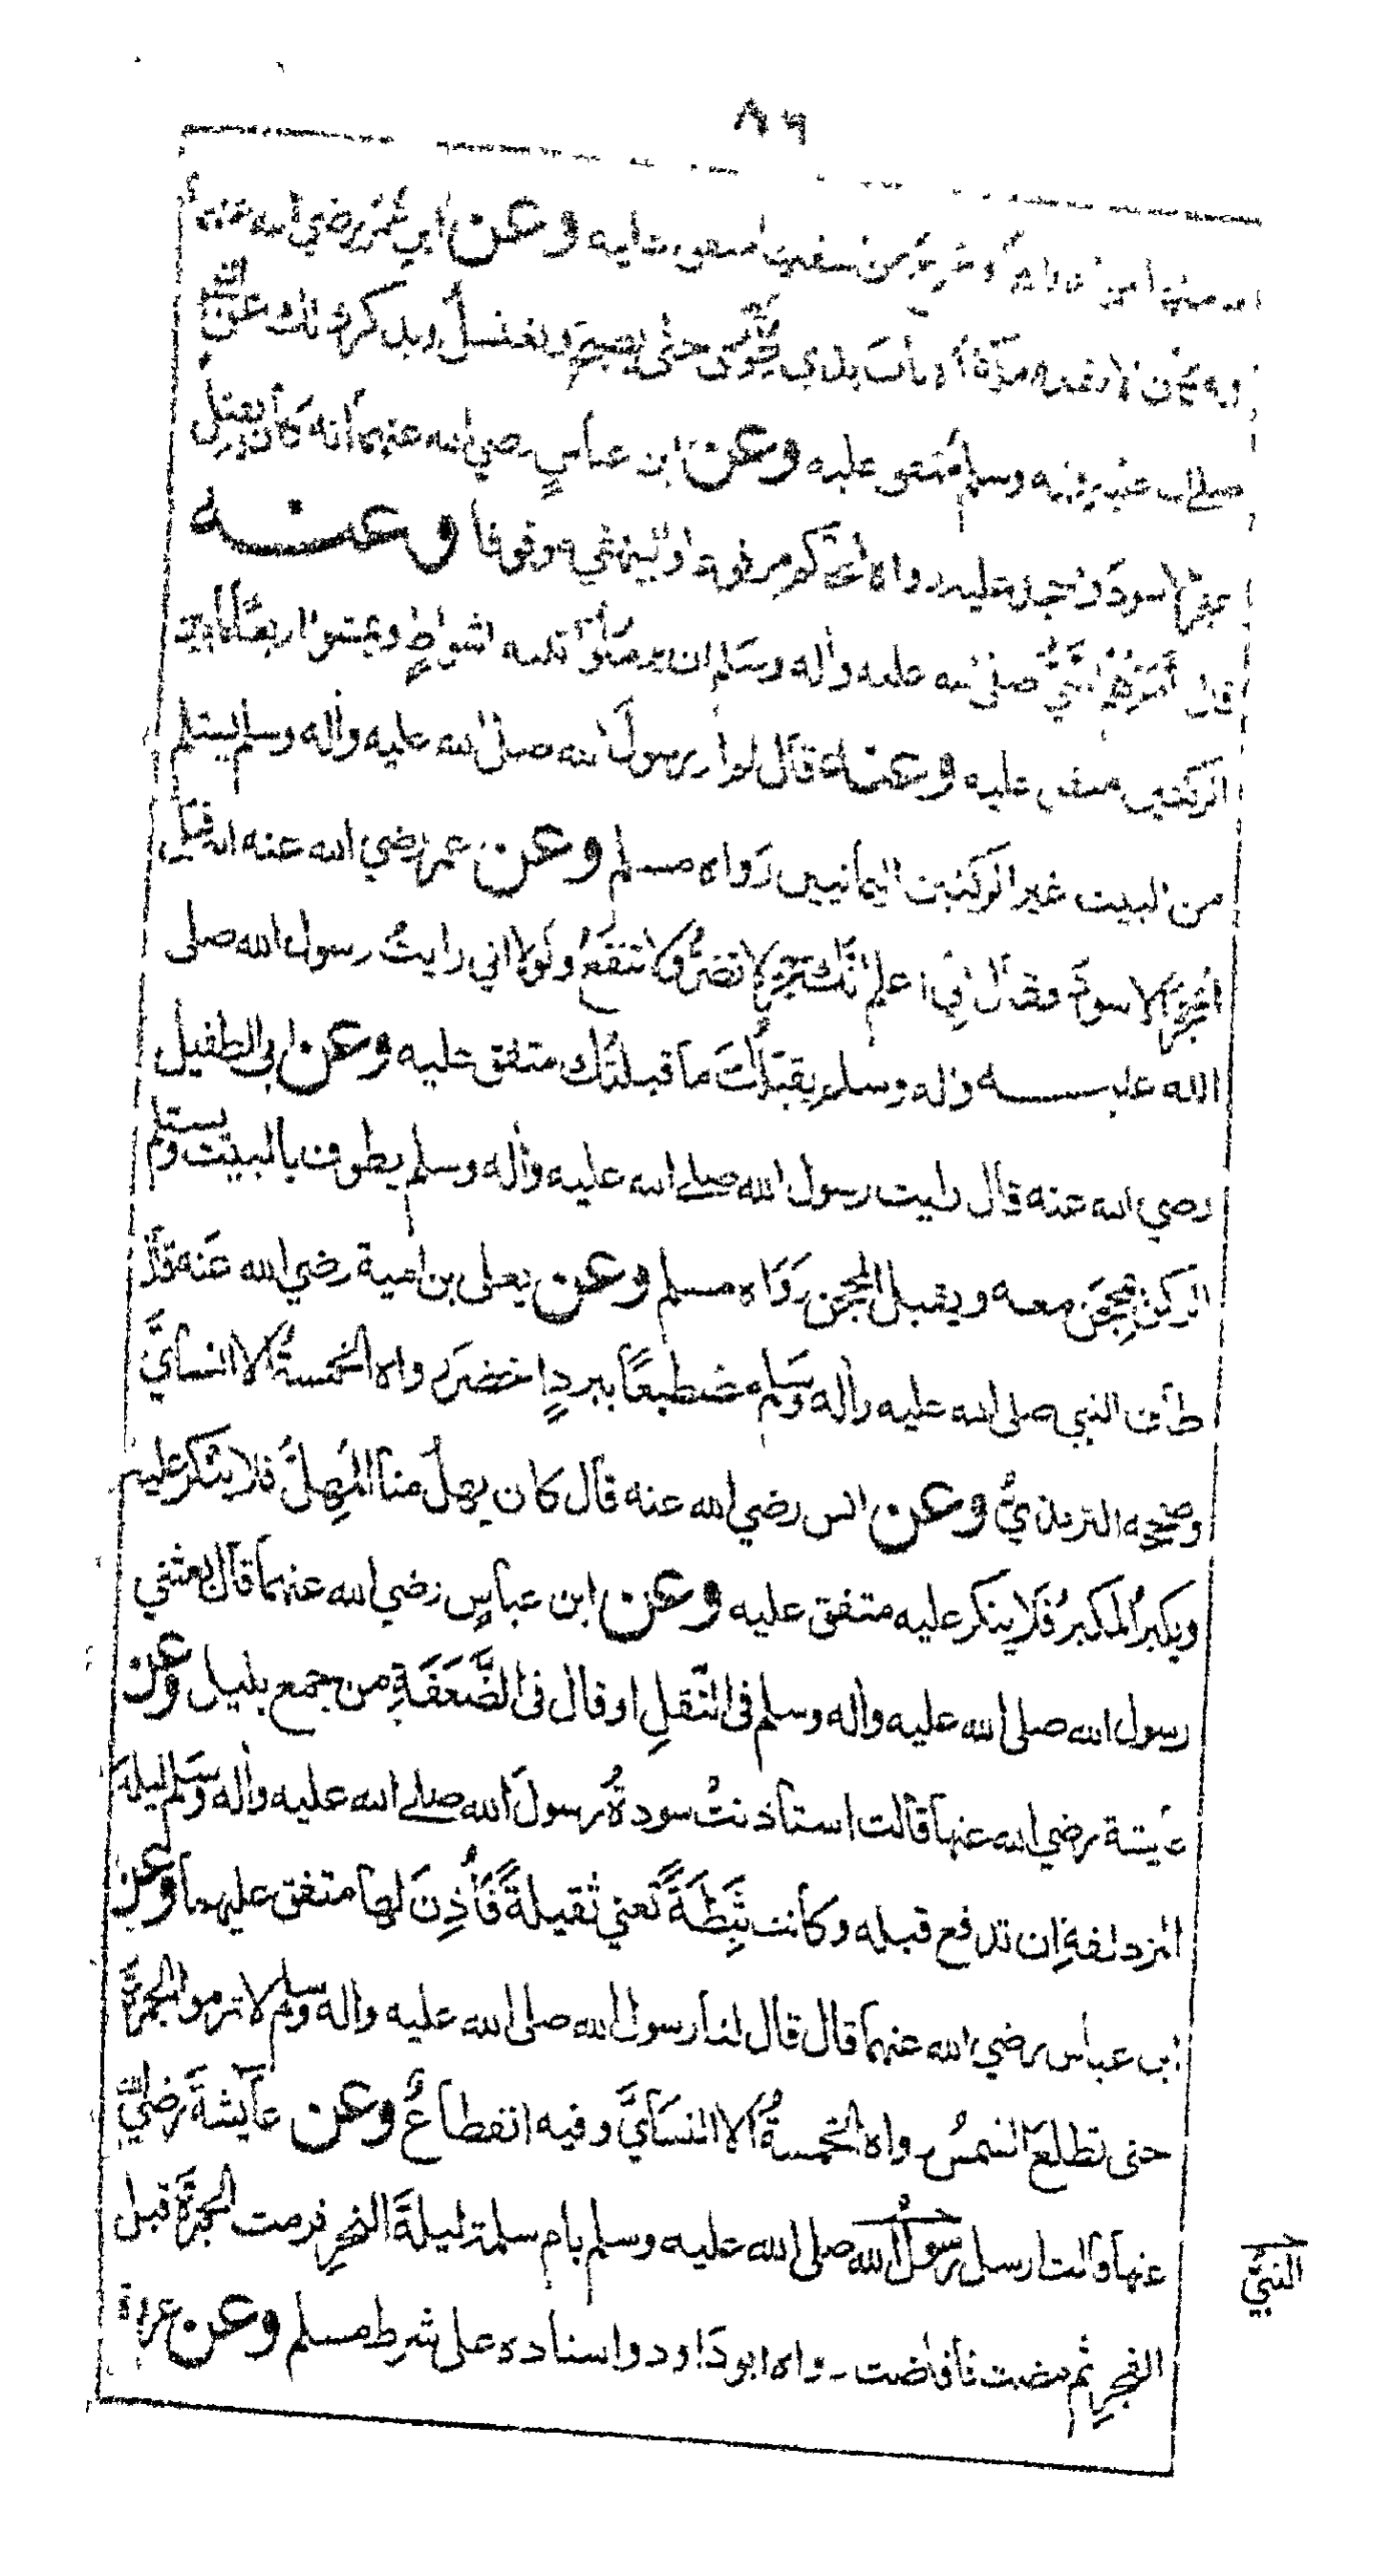 ٨٩
من اسفلها متفق عليه وعن ابن عمر رضي الله عنه أنه
كان لا يقدم مكة الا بات بذي طوى حتى يصبح ويغتسل ويذكر ذلك عن النبي
صلى الله عليه وآله وسلم متفق عليه وعن ابن عباس رضي الله عنهما أنه كان يقبل
الحجر الاسود ويسجد عليه رواه الحاكم مرفوعا والبيهقي موقوفا وعنه
قال أمرهم النبي صلى الله عليه وآله وسلم ان يرملوا ثلثه اشواط ويمشوا اربعا ما بين
الركنين متفق عليه وعنه قال لم أر رسول الله صلى الله عليه وآله وسلم يستلم
من البيت غير الركنين اليمانيين رواه مسلم وعن عمر رضي الله عنه انه قبل
الحجر الاسود فقال اني اعلم انك حجر لا تضر ولا تنفع ولولا اني رايت رسول الله صلى
الله عليه وآله وسلم يقبلك ما قبلتك متفق عليه وعن ابي الطفيل
رضي الله عنه قال رايت رسول الله صلى الله عليه وآله وسلم يطوف بالبيت ويستلم
الركن بمحجن معه ويقبل المحجن رواه مسلم وعن يعلى بن امية رضي الله عنه قال
طاف النبي صلى الله عليه وآله وسلم مضطبعًا ببردٍ اخضر رواه الخمسةُ الا النسائيَّ
وصححه الترمذيُّ وعن انس رضي الله عنه قال كان يهلُّ منا المُهِلُّ فلا ينكر عليه
ويكبرُ المكبرُ فلا ينكر عليه متفق عليه وعن ابن عباسٍ رضي الله عنهما قال بعثني
رسول الله صلى الله عليه وآله وسلم في الثقلِ او قال في الضَّعَفَةِ من جمع بليل وعن
عايشة رضي الله عنها قالت استأذنتْ سودةُ رسولَ الله صلى الله عليه وآله وسلم ليلة
المزدلفةِ ان تدفع قبله وكانت ثَبِطَةً تعني ثقيلةً فأُذِنَ لها متفق عليهما وعن
ابن عباس رضي الله عنهما قال قال لنا رسول الله صلى الله عليه وآله وسلم لا ترموا الجمرةَ
حتى تطلعَ الشمسُ رواه الخمسةُ الا النسائيَّ وفيه انقطاعٌ وعن عآيشةَ رضي الله
عنها قالت ارسل رسولُ الله صلى الله عليه وسلم بام سلمة ليلةَ النحرِ فرمت الجمرةَ قبل
النبيُّ
الفجرِ ثم مضت فأفاضت رواه ابو داود واسناده على شرط مسلم وعن عروة